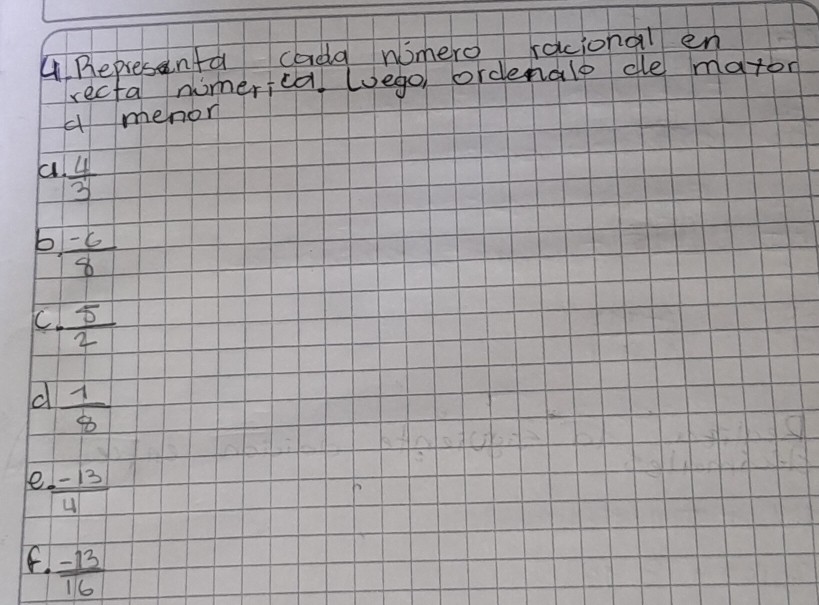 4. Representa cada número racional en
recta númerica. Luego, ordenalo de mayor
a menor
a. 4/3
b. -6/8
c. 5/2
d 1/8
e. -13/4
f. -13/16